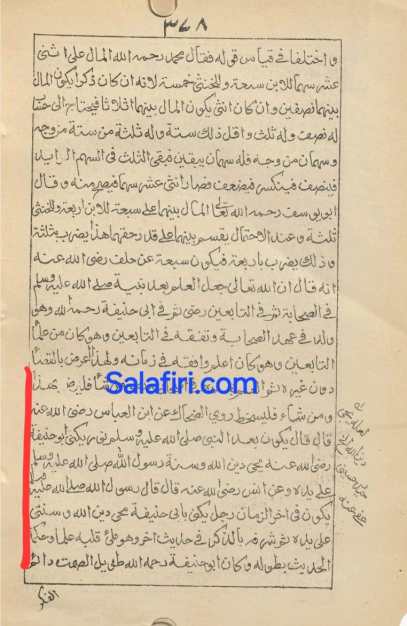 ٣٦٨
واختلفا في قياس قوله فقال محمد رحمه الله المال على اثنى
عشر سهما للابن سبعة وللخنثى خمسة لانه ان كان ذكرا يكون المال
بينهما نصفين وان كان انثى يكون المال بينهما اثلاثا فيحتاج الى حساب
له نصف وله ثلث واقل ذلك ستة وله ثلثة من ستة من وجه
وسهمان من وجه فله سهمان بيقين فبقى الثلث في السهم الزايد
فينصف فينكسر فيضعف فصار اثنى عشر سهما فيصح منه وقال
ابو يوسف رحمه الله تعالى المال بينهما على سبعة للابن اربعة وللخنثى
ثلثة وعند الاحتمال يقسم بينهما على قدر حقهما هذا يضرب بثلثة
وذلك يضرب باربعة فيكون سبعة عن خلف رضى الله عنه
انه قال ان الله تعالى جعل العلم بعد نبيه صلى الله عليه وسلم
في الصحابة ثم في التابعين رضى ثم في ابى حنيفة رحمه الله وهو
ولد في عهد الصحابة وتفقه في التابعين وهو كان من علماء
التابعين وهو كان اعلم وافقه في زمانه ولهذا
دون غيره فليرض بهذا
Salafiri.com
ومن شاء فليسخط روى الضحاك عن ابن العباس رضى الله عنه
قال قال يكون بعد النبى صلى الله عليه وسلم نور يكنى ابو حنيفة
رضى الله عنه يحيى دين الله وسنة رسول الله صلى الله عليه وسلم
على يده وعن انس رضى الله عنه قال قال رسول الله صلى الله عليه وسلم
يكون في اخر الزمان رجل يكنى بابى حنيفة يحيى دين الله وسنتى
على يده ثم شرفه بالذكر في حديث اخر وهو
الحديث بطوله وكان ابو حنيفة رحمه الله طويل الصمت دائم
الفكر